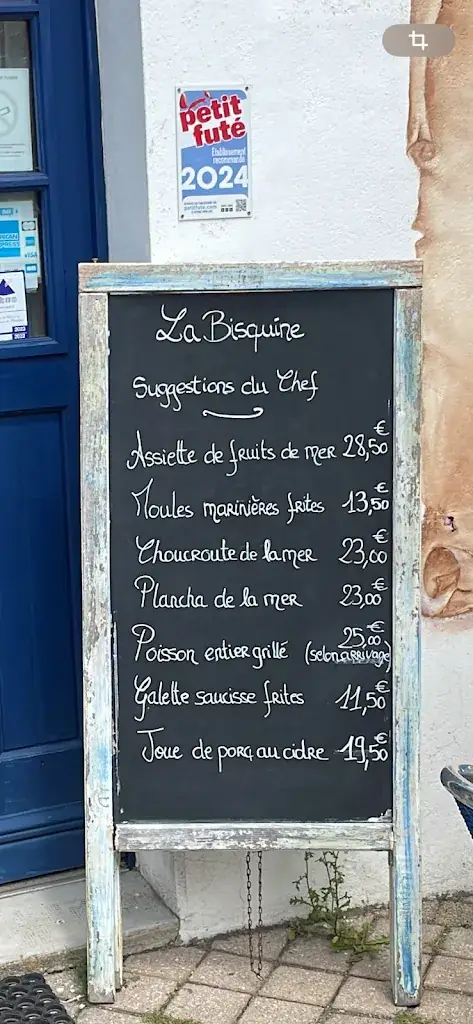 petit
futé
Etablissement
recommandé
2024
petitfute.com
VISA
La Bisquine
Suggestions du Chef
Assiette de fruits de mer 28,50€
Moules marinières frites 13,50€
Choucroute de la mer 23,00€
Plancha de la mer 23,00€
Poisson entier grillé 25,00€ (selon arrivage)
Galette saucisse frites 11,50€
Joue de porc au cidre 19,50€